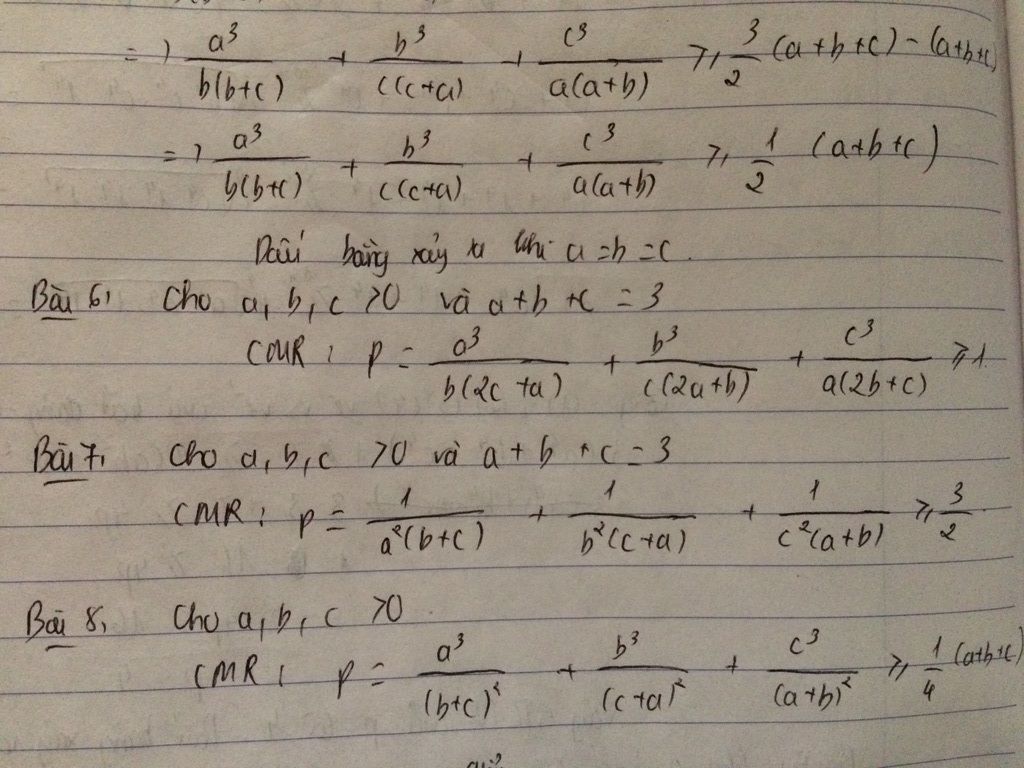 => a³/b(b+c) + b³/c(c+a) + c³/a(a+b) ≥ 3/2 (a+b+c) - (a+b+c)
=> a³/b(b+c) + b³/c(c+a) + c³/a(a+b) ≥ 1/2 (a+b+c)
Dấu bằng xảy ra khi a=b=c.
Bài 6, Cho a, b, c >0 và a+b+c = 3
CMR: P = a³/b(2c+a) + b³/c(2a+b) + c³/a(2b+c) ≥ 1.
Bài 7, Cho a, b, c >0 và a+b+c = 3
CMR: P = 1/a²(b+c) + 1/b²(c+a) + 1/c²(a+b) ≥ 3/2.
Bài 8, Cho a, b, c >0
CMR: P = a³/(b+c)² + b³/(c+a)² + c³/(a+b)² ≥ 1/4 (a+b+c)